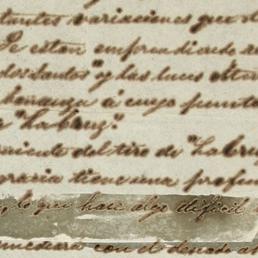 tantes variaciones que d
Se están emprendiendo
dos Santos" y las luces
bonanza á cuyo punto
a "La Cruz".
miento del tiro de "La Cru
oracia tiene una profun
, lo que hace algo difícil
con el desada